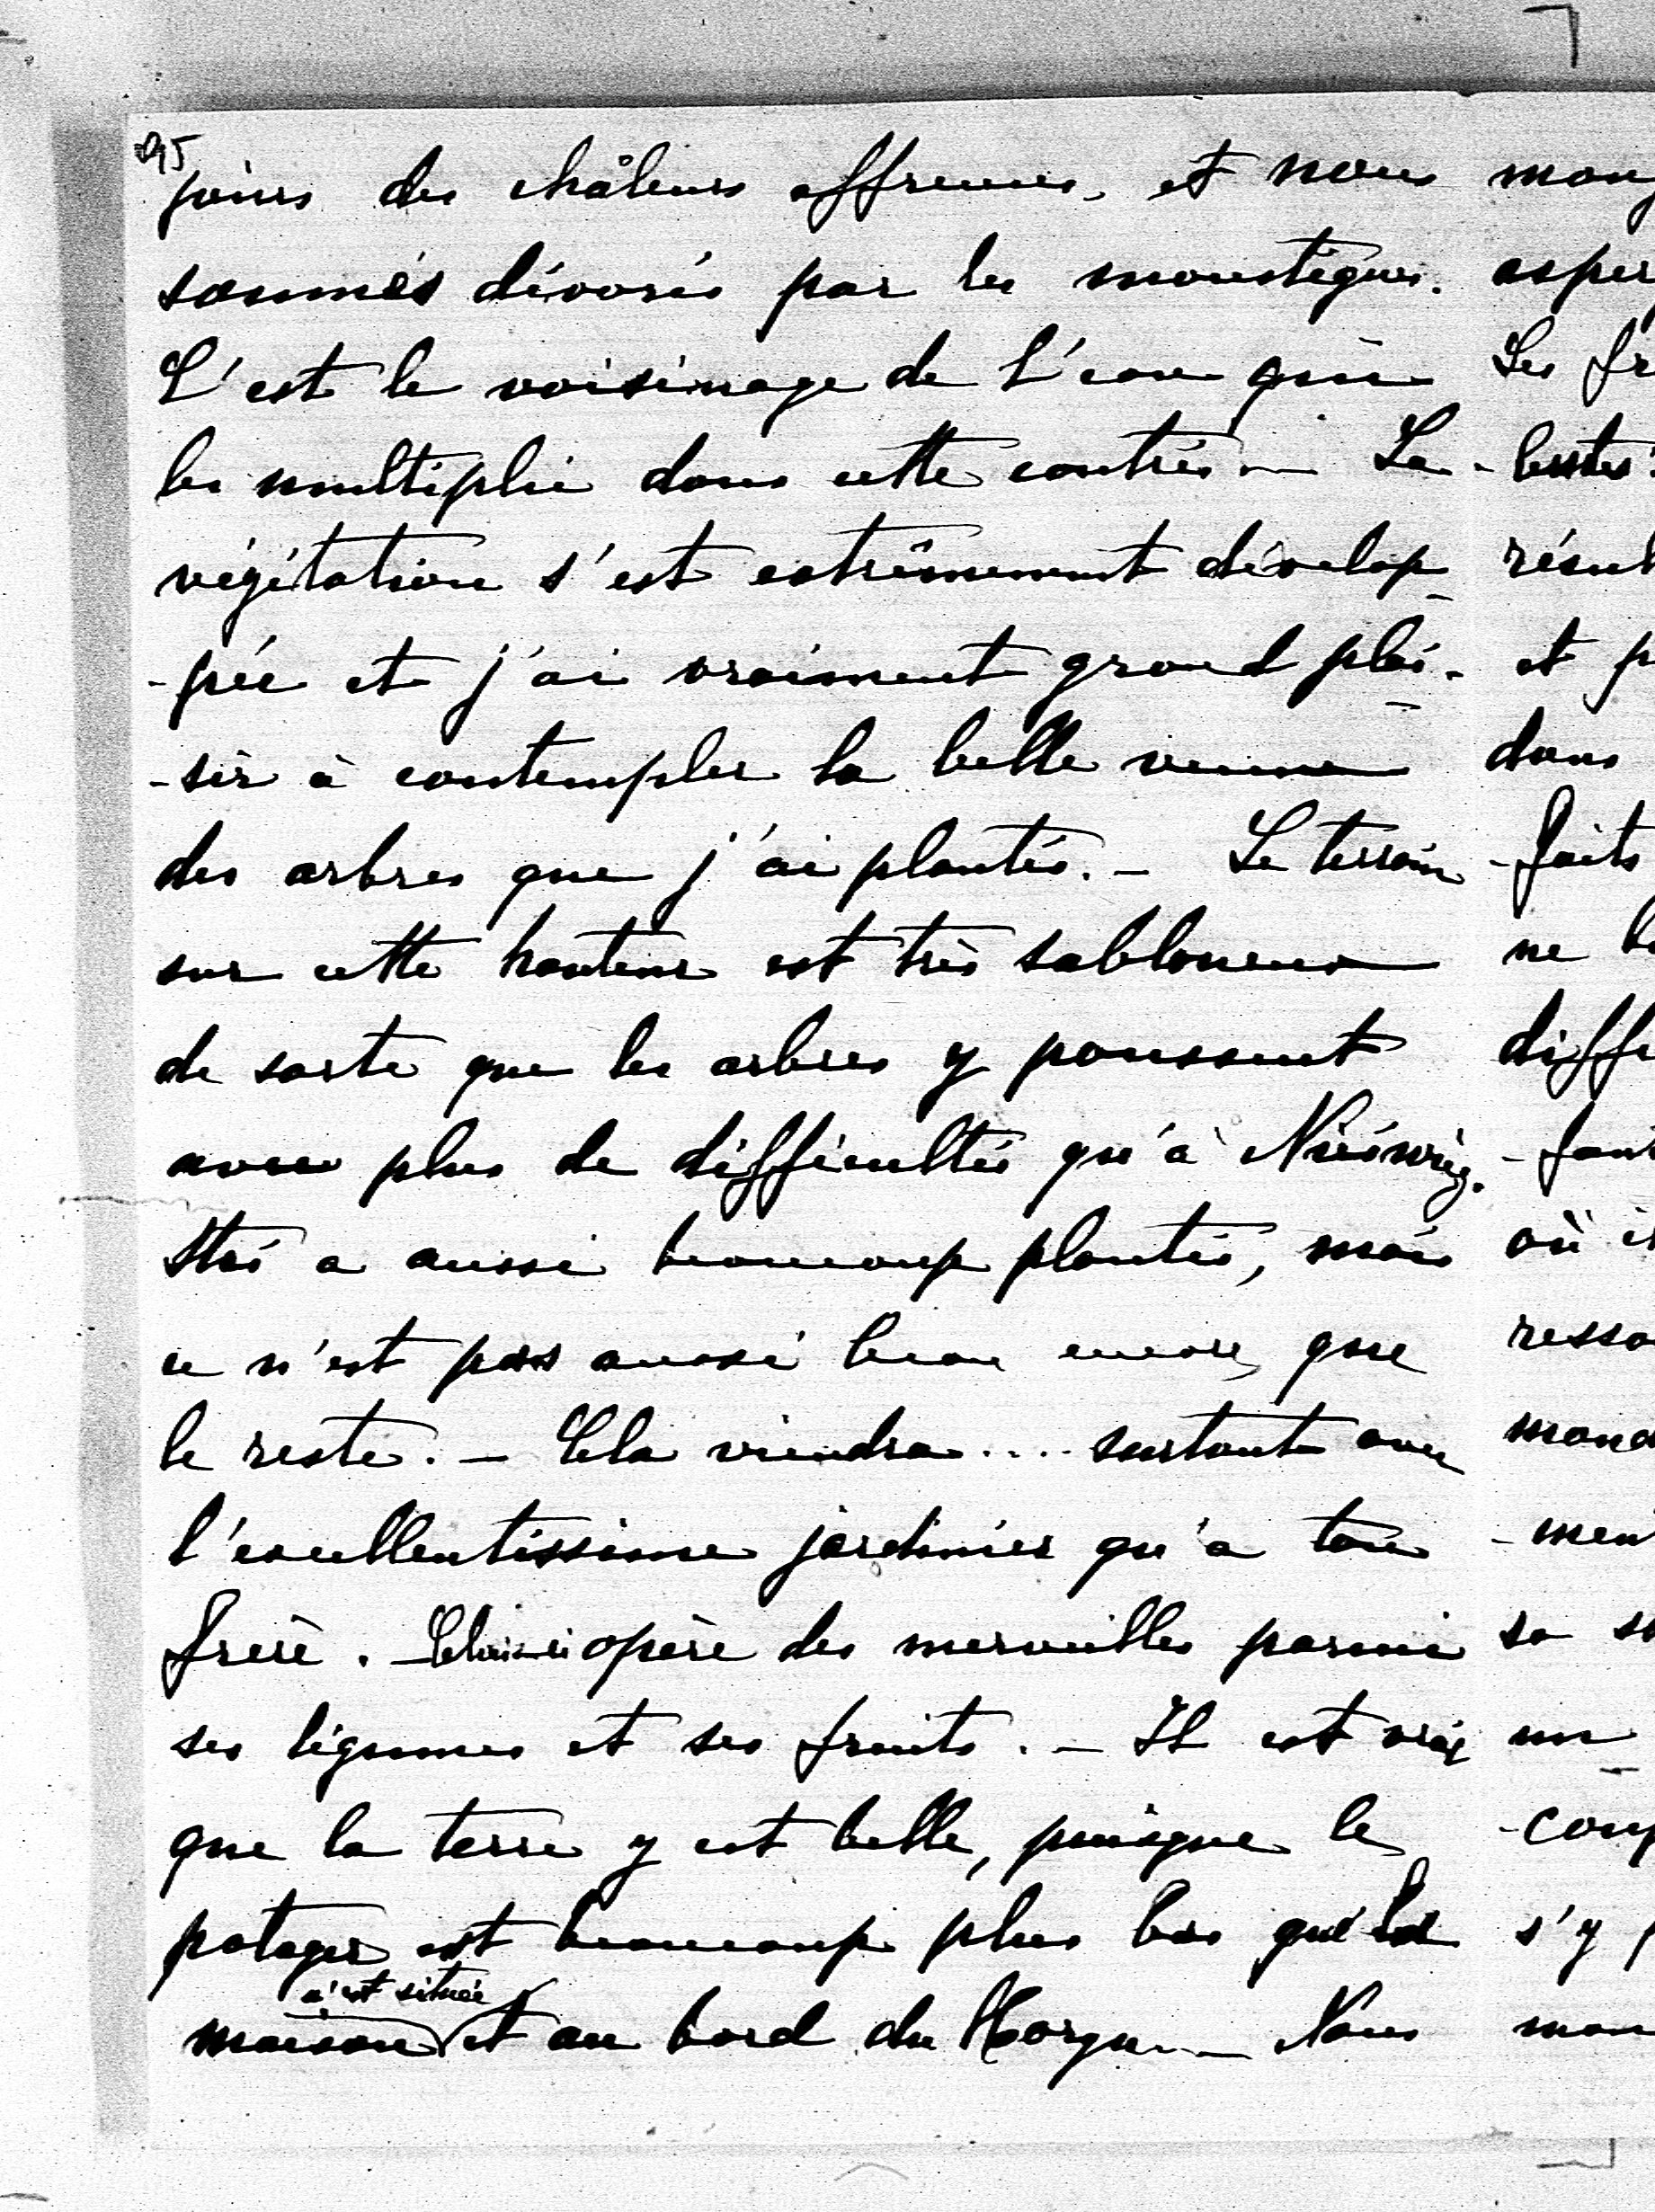 95
jours des châleurs affreuses, et nous
sommés dévorés par les moustiques.
C'est le voisinage de l'eau qui
les multiplie dans cette contrée — La
végétation s'est extrêmement dévelop-
-pée et j'ai vraiment grand plai-
-sir à contempler la belle venue
des arbres que j'ai plantés. — Le terrain
sur cette hauteur est très sablonneux
de sorte que les arbres y poussent
avec plus de difficultés qu'à
Stas a aussi beaucoup planté, mais
ce n'est pas aussi beau encore que
le reste. — Cela viendra .... surtout avec
l'excellentissime jardinier qu'a ton
frère. — Celui-ci opère des merveilles parmi
ses légumes et ses fruits. — Il est vrai
que la terre y est belle, puisque le
potager est beaucoup plus bas que la
n'est située
maison et au bord du Horyn. — Nous
asper
Les fr
résul
et p
dans
-faits
diffe
où i
resso
-men
sa
un
-coup
s'y p